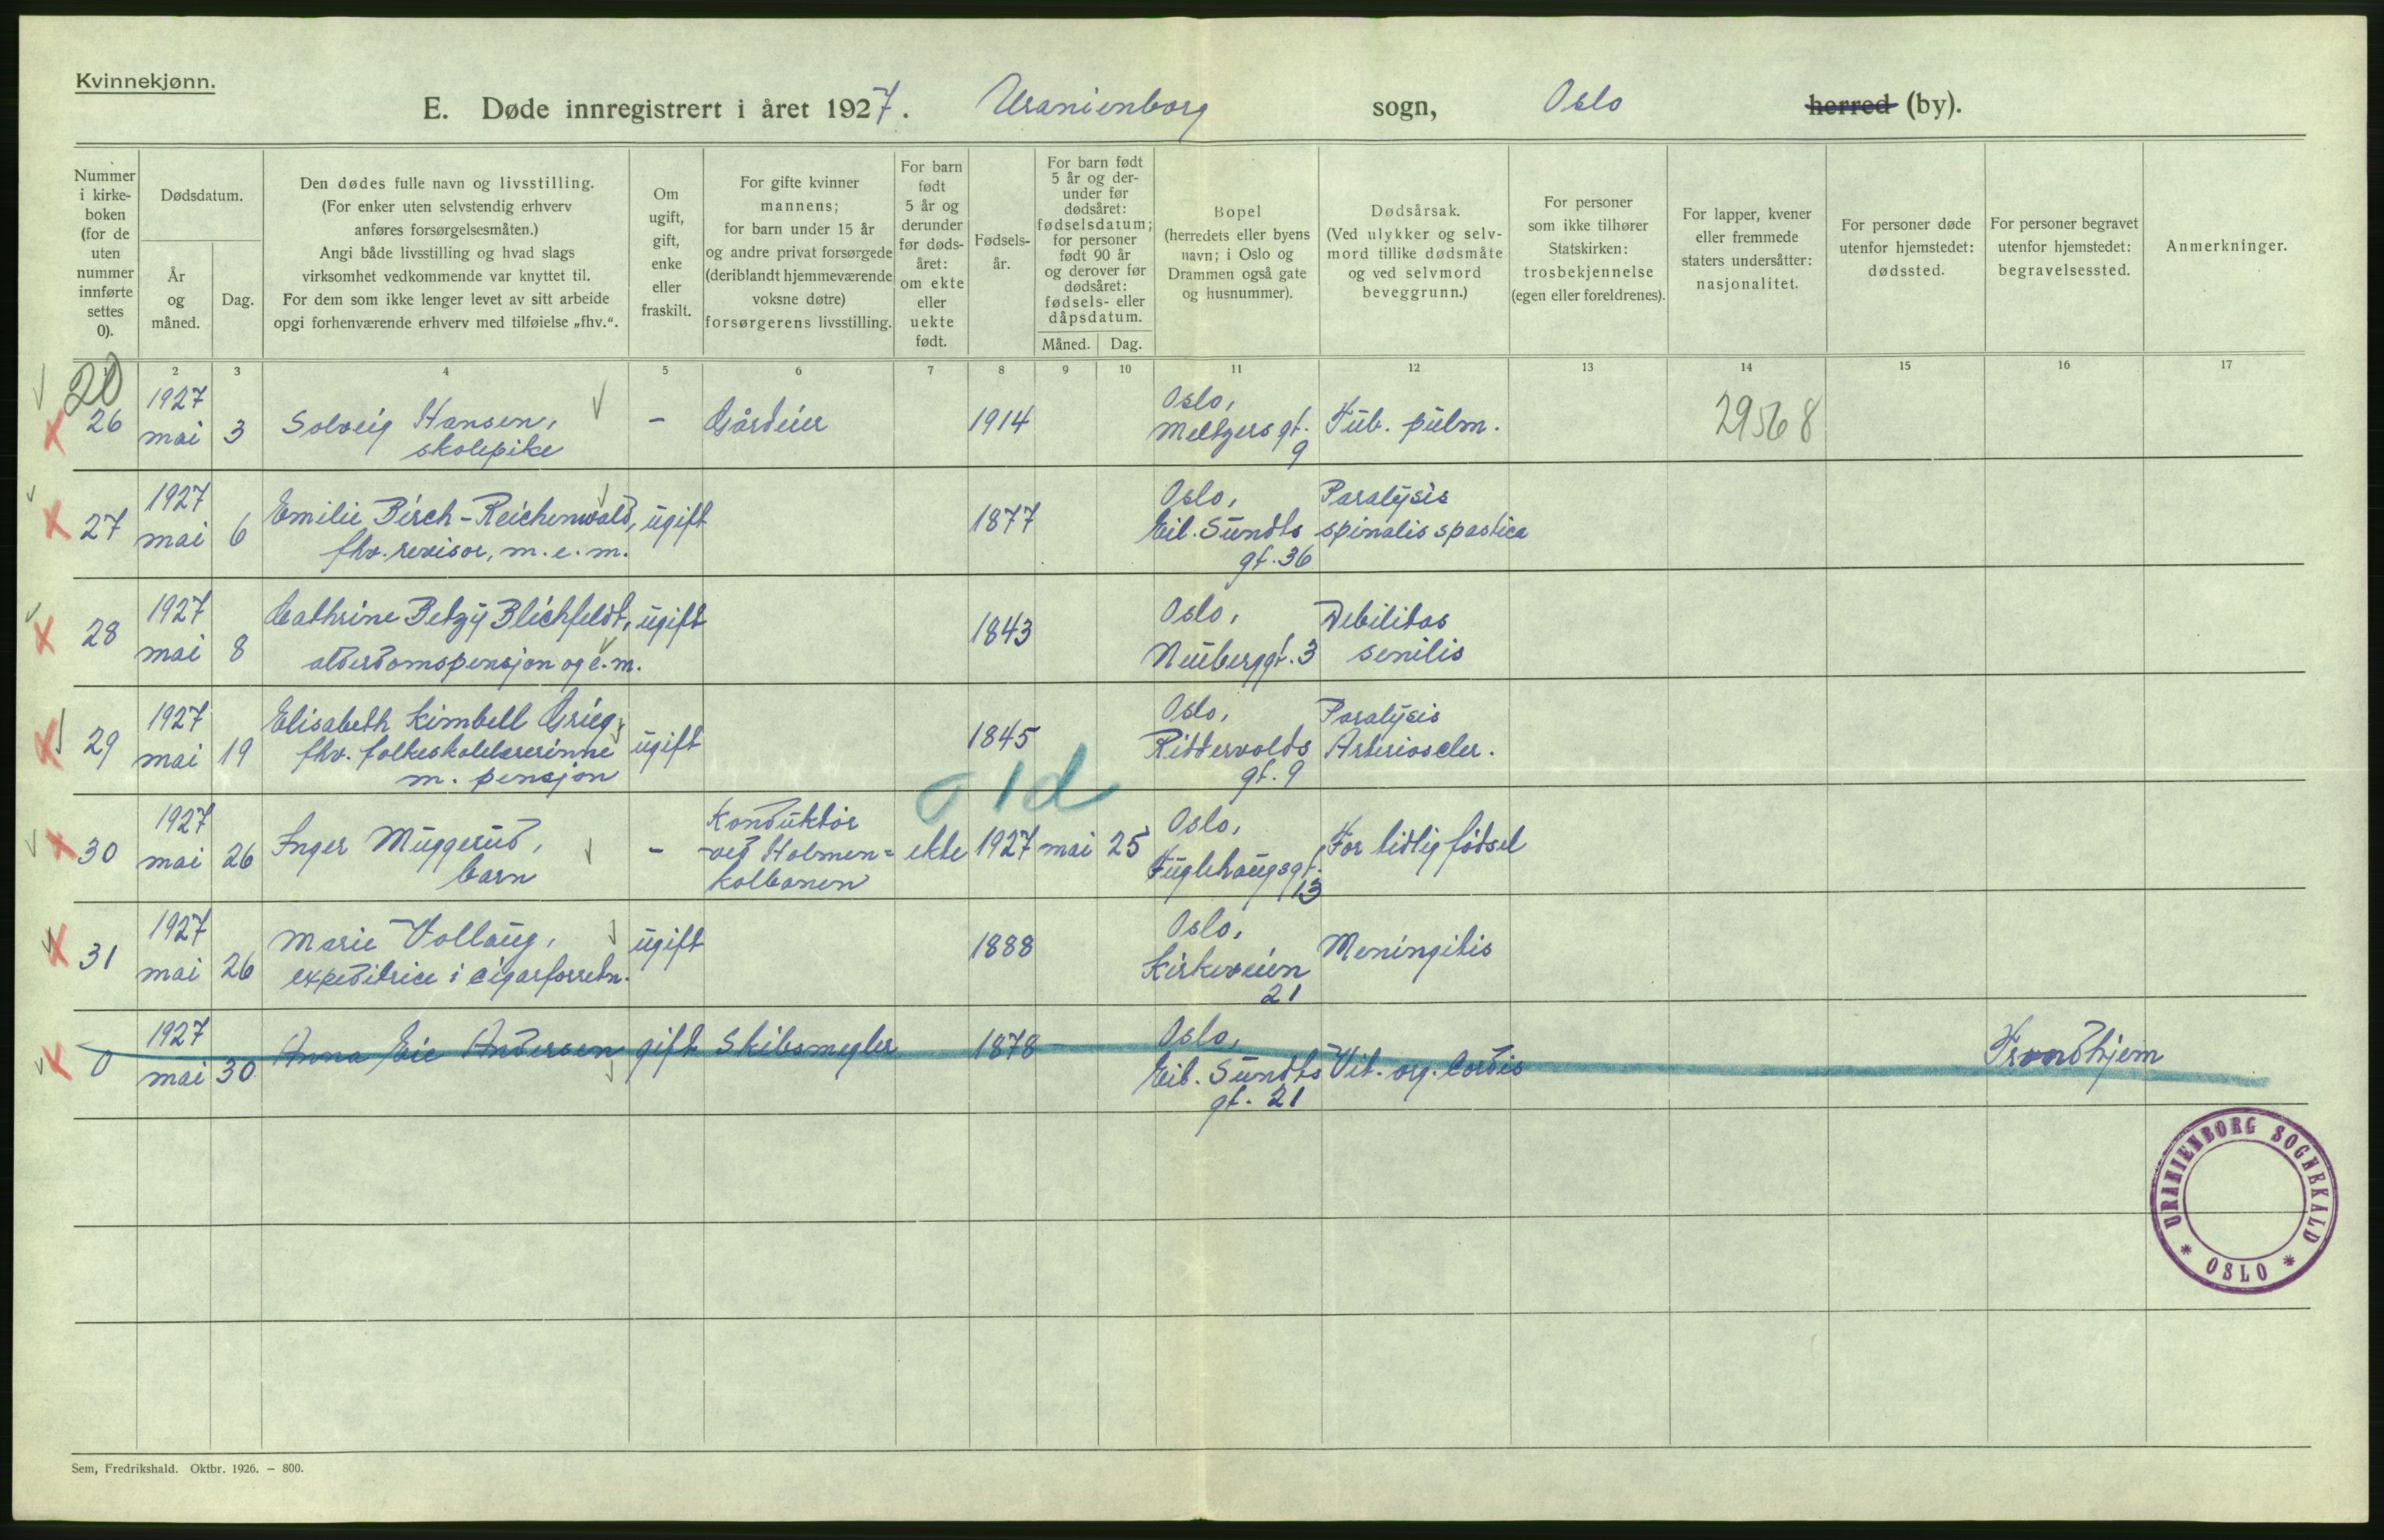 Kvinnekjønn.
E. Døde innregistrert i året 1927. Uranienborg sogn, Oslo herred (by).
Nummer i kirke-boken (for de uten nummer innførte settes 0).
Dødsdatum.
År og måned.
Dag.
Den dødes fulle navn og livsstilling.
(For enker uten selvstendig erhverv
anføres forsørgelsesmåten.)
Angi både livsstilling og hvad slags
virksomhet vedkommende var knyttet til.
For dem som ikke lenger levet av sitt arbeide
opgi forhenværende erhverv med tilføielse „fhv.“.
Om
ugift,
gift,
enke
eller
fraskilt.
For gifte kvinner
mannens;
for barn under 15 år
og andre privat forsørgede
(deriblandt hjemmeværende
voksne døtre)
forsørgerens livsstilling.
For barn
født
5 år og
derunder
før døds-
året:
om ekte
eller
uekte
født.
Fødsels-
år.
For barn født
5 år og der-
under før
dødsåret:
fødselsdatum;
for personer
født 90 år
og derover før
dødsåret:
fødsels- eller
dåpsdatum.
Måned. Dag.
Bopel
(herredets eller byens
navn; i Oslo og
Drammen også gate
og husnummer).
Dødsårsak.
(Ved ulykker og selv-
mord tillike dødsmåte
og ved selvmord
beveggrunn.)
For personer
som ikke tilhører
Statskirken:
trosbekjennelse
(egen eller foreldrenes).
For lapper, kvener
eller fremmede
staters undersåtter:
nasjonalitet.
For personer døde
utenfor hjemstedet:
dødssted.
For personer begravet
utenfor hjemstedet:
begravelsessted.
Anmerkninger.
1 2 3 4 5 6 7 8 9 10 11 12 13 14 15 16 17
20
26 1927 mai 3 Solveig Hansen, skolepike - Gårdeier 1914 Oslo, Meltzers gt. 9 Tub. pulm. 29568
27 1927 mai 6 Emilie Birch-Reichenwald, fhv. revisor, m.e.m. ugift 1877 Oslo, Eil. Sundts gt. 36 Paralysis spinalis spastica
28 1927 mai 8 Cathrine Betzy Blichfeldt, alderdomspensjon og e.m. ugift 1843 Oslo, Neuberggt. 3 Debilitas senilis
29 1927 mai 19 Elisabeth Kimbell Grieg, fhv. folkeskolelærerinne m. pensjon ugift 1845 Oslo, Riddervolds gt. 9 Paralysis Arterioscler.
1d
30 1927 mai 26 Inger Muggerud, barn - Konduktør ved Holmen=kolbanen ekte 1927 mai 25 Oslo, Fuglehaugsgt. 13 For tidlig fødsel
31 1927 mai 26 Marie Vollaug, expeditrice i cigarforretn. ugift 1888 Oslo, Kirkeveien 21 Meningitis
0 1927 mai 30 Anna Eie Andersen gift Skibsmegler 1878 Oslo, Eil. Sundts gt. 21 Vit. org. cordis Trondhjem
URANIENBORG SOGNEKALD * OSLO *
Sem, Fredrikshald. Oktbr. 1926. — 800.